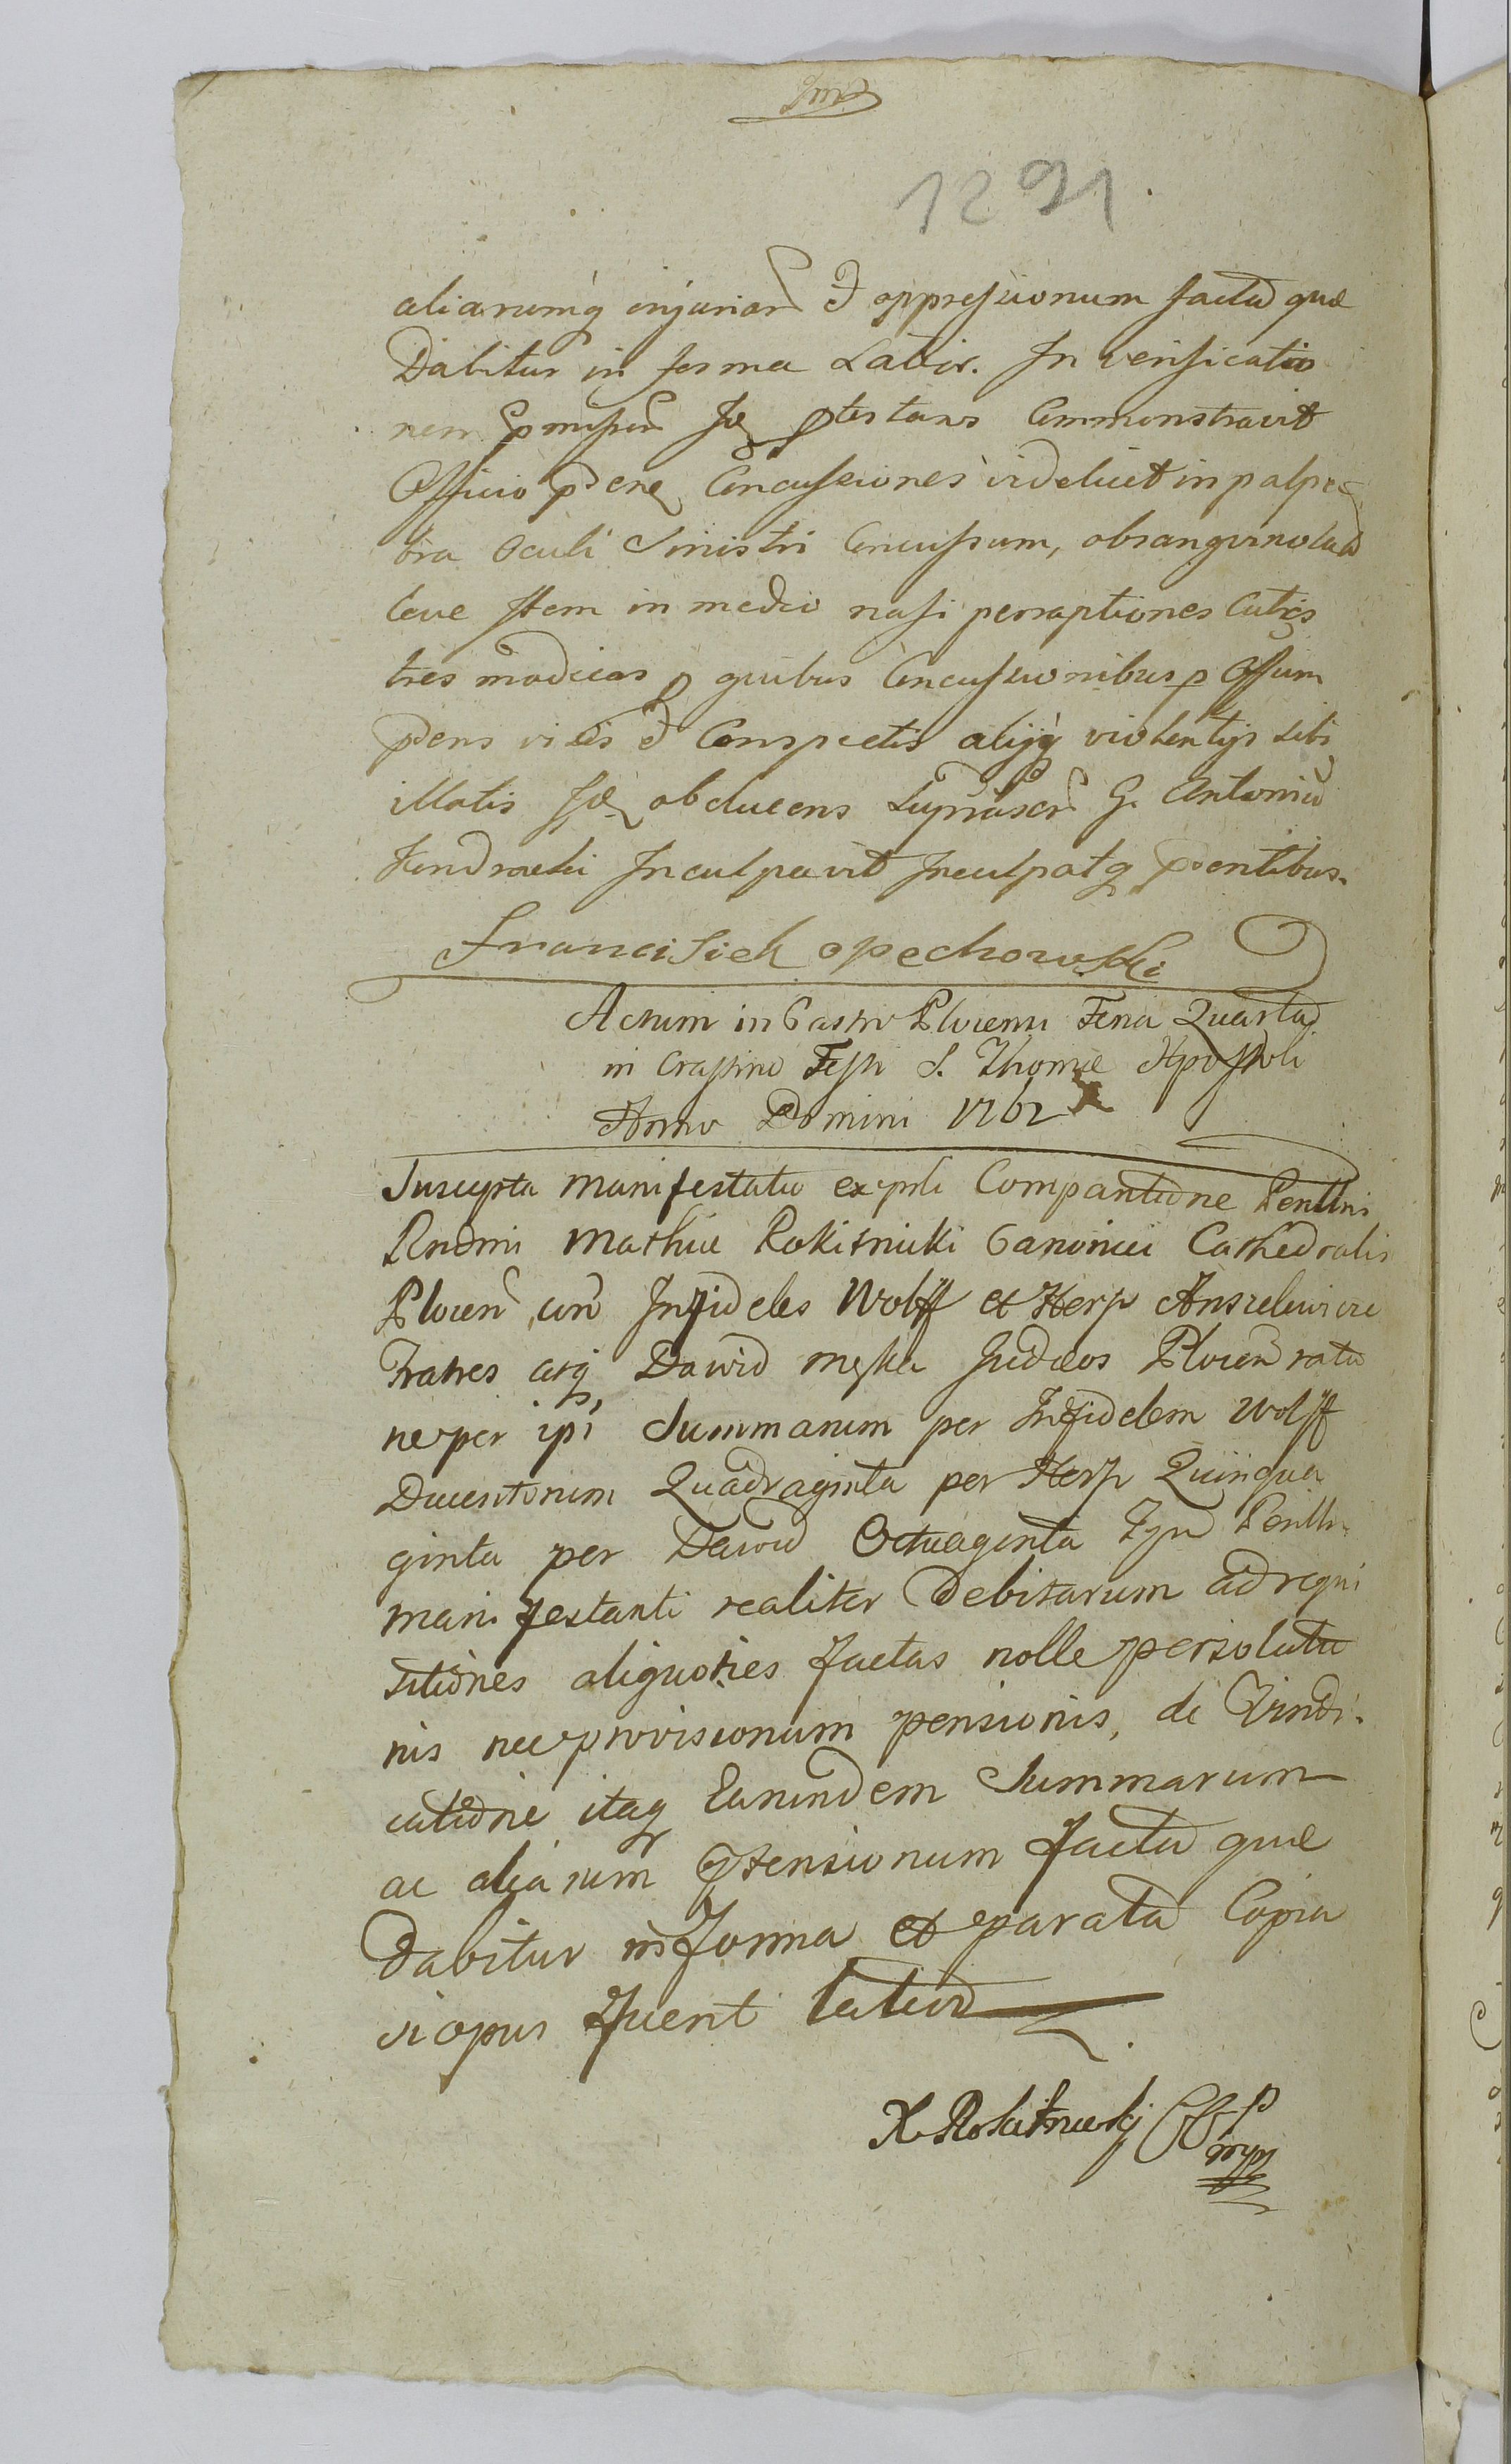 1291.
aliarumq injuriar et oppressionum facta quæ
Dabitur in forma Latior. In verificatio
nem pmissor Idem ptestans Commonstravit
Officio pden Concussiones videlicet in palpe
bra Oculi Sinistri Concussum, obsanguinolat
leve Item in medio nasi perraptiones Cutis
tres modicas p quibus Concussionibus p Offium
pdens visis et Conspectis alijsq violentijs sibi
illatis Idem obducens suprascr G. Antoniu
Jendrzeki Inculpavit Inculpatq pdentibus.
Francisiek opechowski
Actum in Castro Plocensi Feria Quarta
in Crastino Festi S. Thomæ Apostoli
Anno Domini 1762
Suscepta Manifestatio ex psli Comparitione Perillris
Rndmi Mathiæ Rokitnicki Canonici Cathedralis
Plocen con Infideles Wolff et Hersz Anszelewicze
Fratres atq Dawid Meszka Judæos Plocen ratio
ne per ipsos Summarum per Infidelem Wolff
Ducentorum Quadraginta per Hersz Quinqua
ginta per Dawid Octuaginta Tynf Perillri
manifestanti realiter Debitarum ad requi
sitiones aliquoties factas nolle persolutio
nis nec provisionum pensionis, de Vindi-
catione itaq Earundem Summarum
ac aliarum ptensionum facta quæ
Dabitur in Forma et parata Copia
si opus fuerit latior
X Rokitnicki KKP
mpp